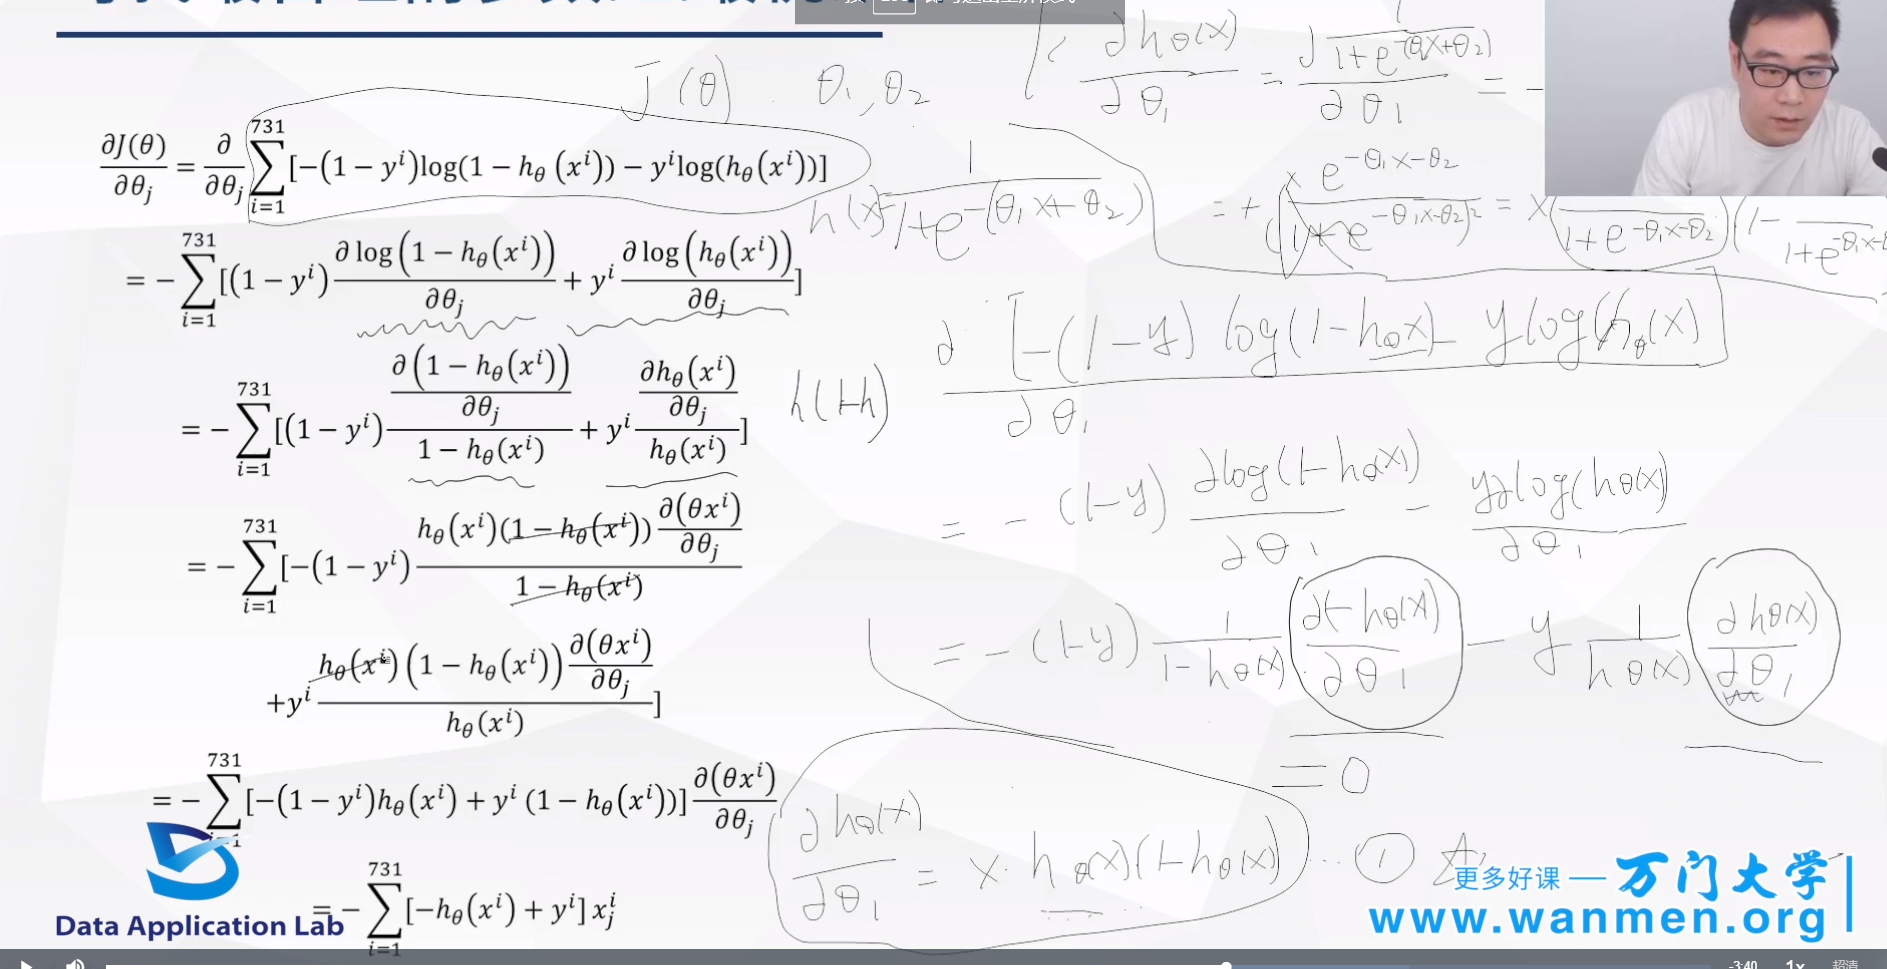 ∂J(θ)/∂θⱼ = ∂/∂θⱼ ∑_{i=1}^{731} [−(1 − yⁱ)log(1 − h_θ(xⁱ)) − yⁱlog(h_θ(xⁱ))]
= − ∑_{i=1}^{731} [(1 − yⁱ) ∂log(1 − h_θ(xⁱ))/∂θⱼ + yⁱ ∂log(h_θ(xⁱ))/∂θⱼ]
= − ∑_{i=1}^{731} [(1 − yⁱ) (∂(1 − h_θ(xⁱ))/∂θⱼ)/(1 − h_θ(xⁱ)) + yⁱ (∂h_θ(xⁱ)/∂θⱼ)/h_θ(xⁱ)]
= − ∑_{i=1}^{731} [−(1 − yⁱ) (h_θ(xⁱ)(1 − h_θ(xⁱ)) ∂(θxⁱ)/∂θⱼ)/(1 − h_θ(xⁱ))
+yⁱ (h_θ(xⁱ)(1 − h_θ(xⁱ)) ∂(θxⁱ)/∂θⱼ)/h_θ(xⁱ)]
= − ∑_{i=1}^{731} [−(1 − yⁱ)h_θ(xⁱ) + yⁱ(1 − h_θ(xⁱ))] ∂(θxⁱ)/∂θⱼ
= − ∑_{i=1}^{731} [−h_θ(xⁱ) + yⁱ] xⱼⁱ
J(θ) . θ₁, θ₂
∂h_θ(x)/∂θ₁ = ∂ 1/(1+e^{−(θ₁x+θ₂)}) / ∂θ₁ = −
h(x) = 1/(1+e^{−(θ₁x+θ₂)})
= + x e^{−θ₁x−θ₂}/(1+e^{−θ₁x−θ₂})² = x( /(1+e^{−θ₁x−θ₂})(1− /(1+e^{−θ₁x−
h(1−h)
∂[−(1−y) log(1−h_θ(x)) − y log(h_θ(x))]/∂θ₁
= −(1−y) ∂log(1−h_θ(x))/∂θ₁ − y∂log(h_θ(x))/∂θ₁
= −(1−y) 1/(1−h_θ(x)) ∂(1−h_θ(x))/∂θ₁ − y 1/h_θ(x) ∂h_θ(x)/∂θ₁
= 0
∂h_θ(x)/∂θ₁ = x · h_θ(x)(1−h_θ(x)) ... ①
Data Application Lab
更多好课 — 万门大学
www.wanmen.org
-3:40 1x 超清